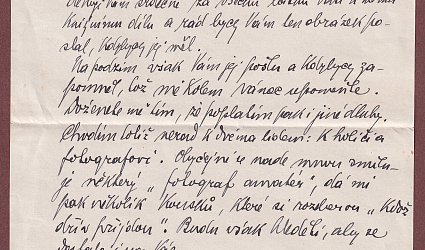 Děkuji Vám srdečně za všechnu
knižnímu dílu a rád bych Vám ten obrázek po-
slal, kdybych jej měl.
Na podzim však Vám jej pošlu a kdybych za-
pomněl, tož mě kolem vánoc upomeňte.
Doženete mě tím, že poplatím pak i jiné dluhy.
Chodím totiž nerad k dvěma lidem: k holiči a
fotografovi. Obyčejně se nade mnou smilu-
je některý „fotograf amatér", dá mi
pak několik kousků, které si rozeberou „kdož
dřív přijdou". Budu však hleděti, aby se